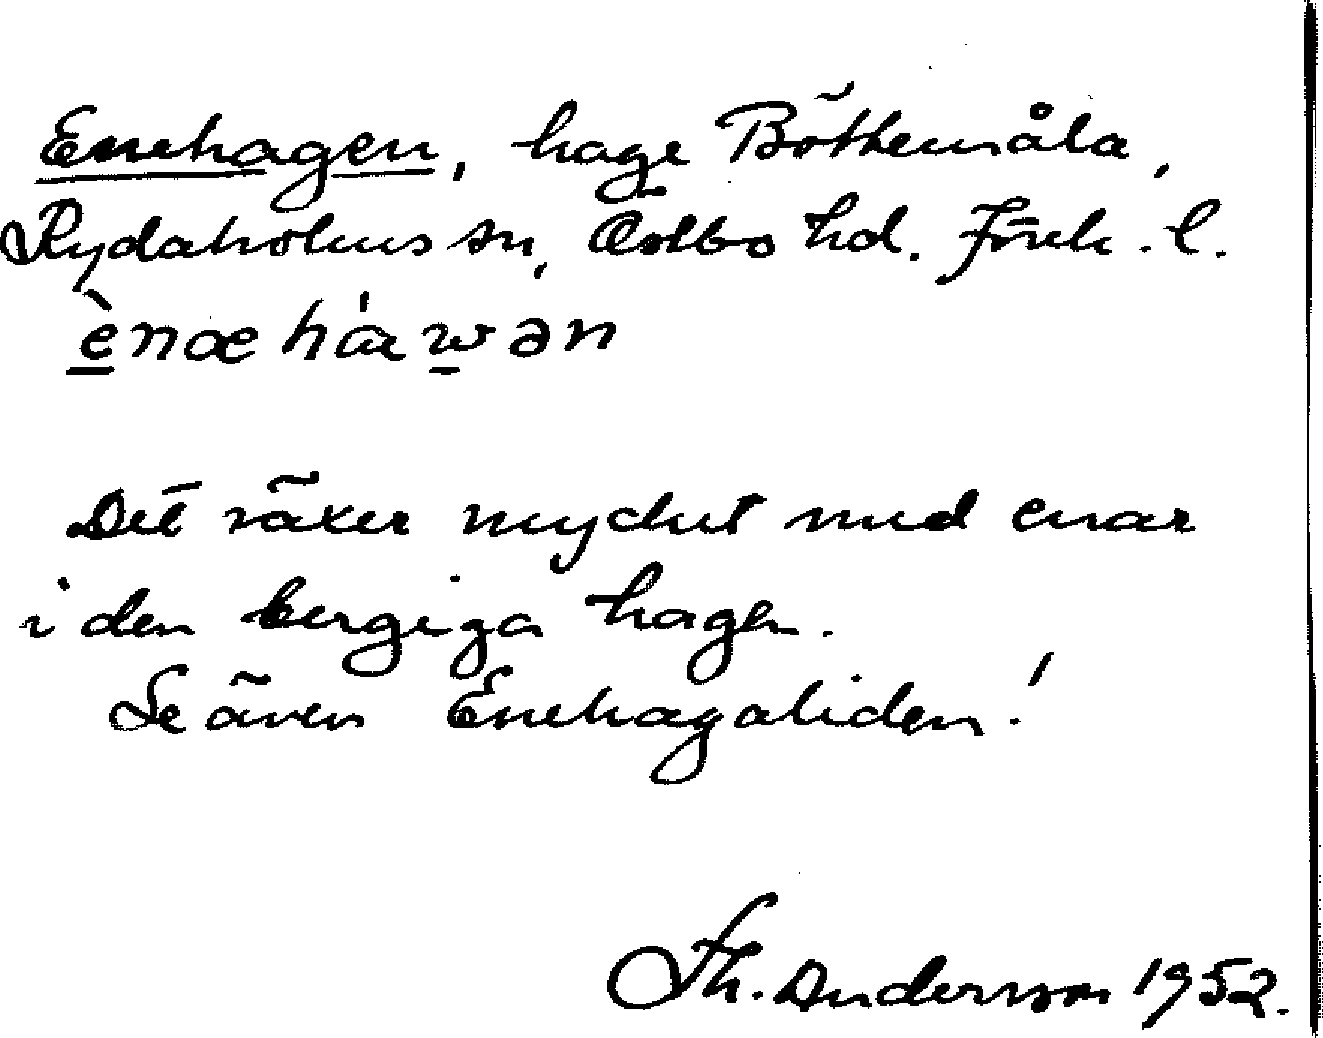 Enehagen, hage Böttkemåla,
Rydaholms sn, Östbo hd. Jönk. l.
ènæ háwən
Det växer mycket med enar
i den bergiga hagen.
Se även Enehagaliden!
Th. Andersson 1952.